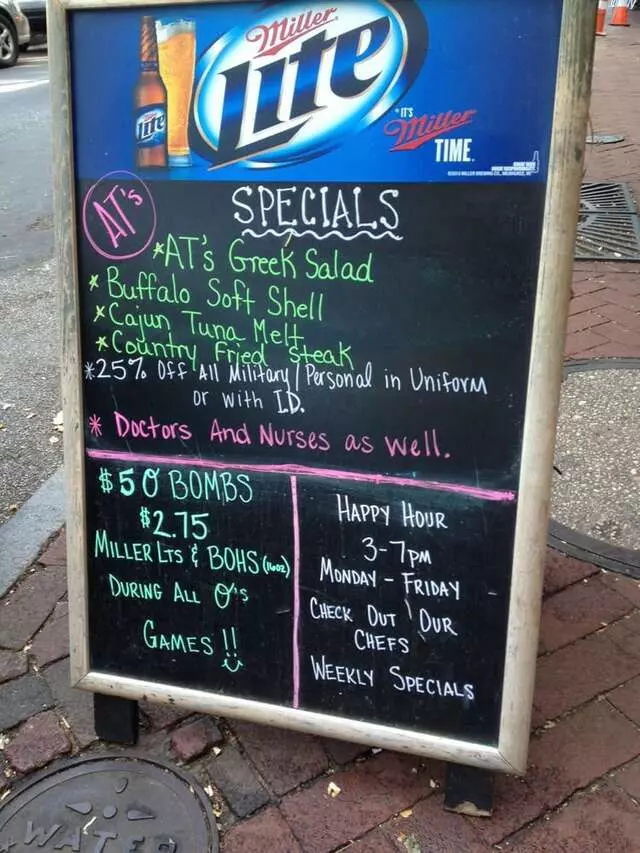 Miller
Lite
Lite
IT'S
Miller
TIME.
AT's
SPECIALS
*AT's Greek Salad
* Buffalo Soft Shell
* Cajun Tuna Melt
* Country Fried Steak
*25% Off All Military/Personal in Uniform
or with I.D.
* Doctors And Nurses as well.
$5 O BOMBS
$2.75
MILLER LTS & BOHS (16oz)
DURING ALL O's
GAMES !!
HAPPY HOUR
3-7PM
MONDAY - FRIDAY
CHECK OUT OUR
CHEFS
WEEKLY SPECIALS
WATER